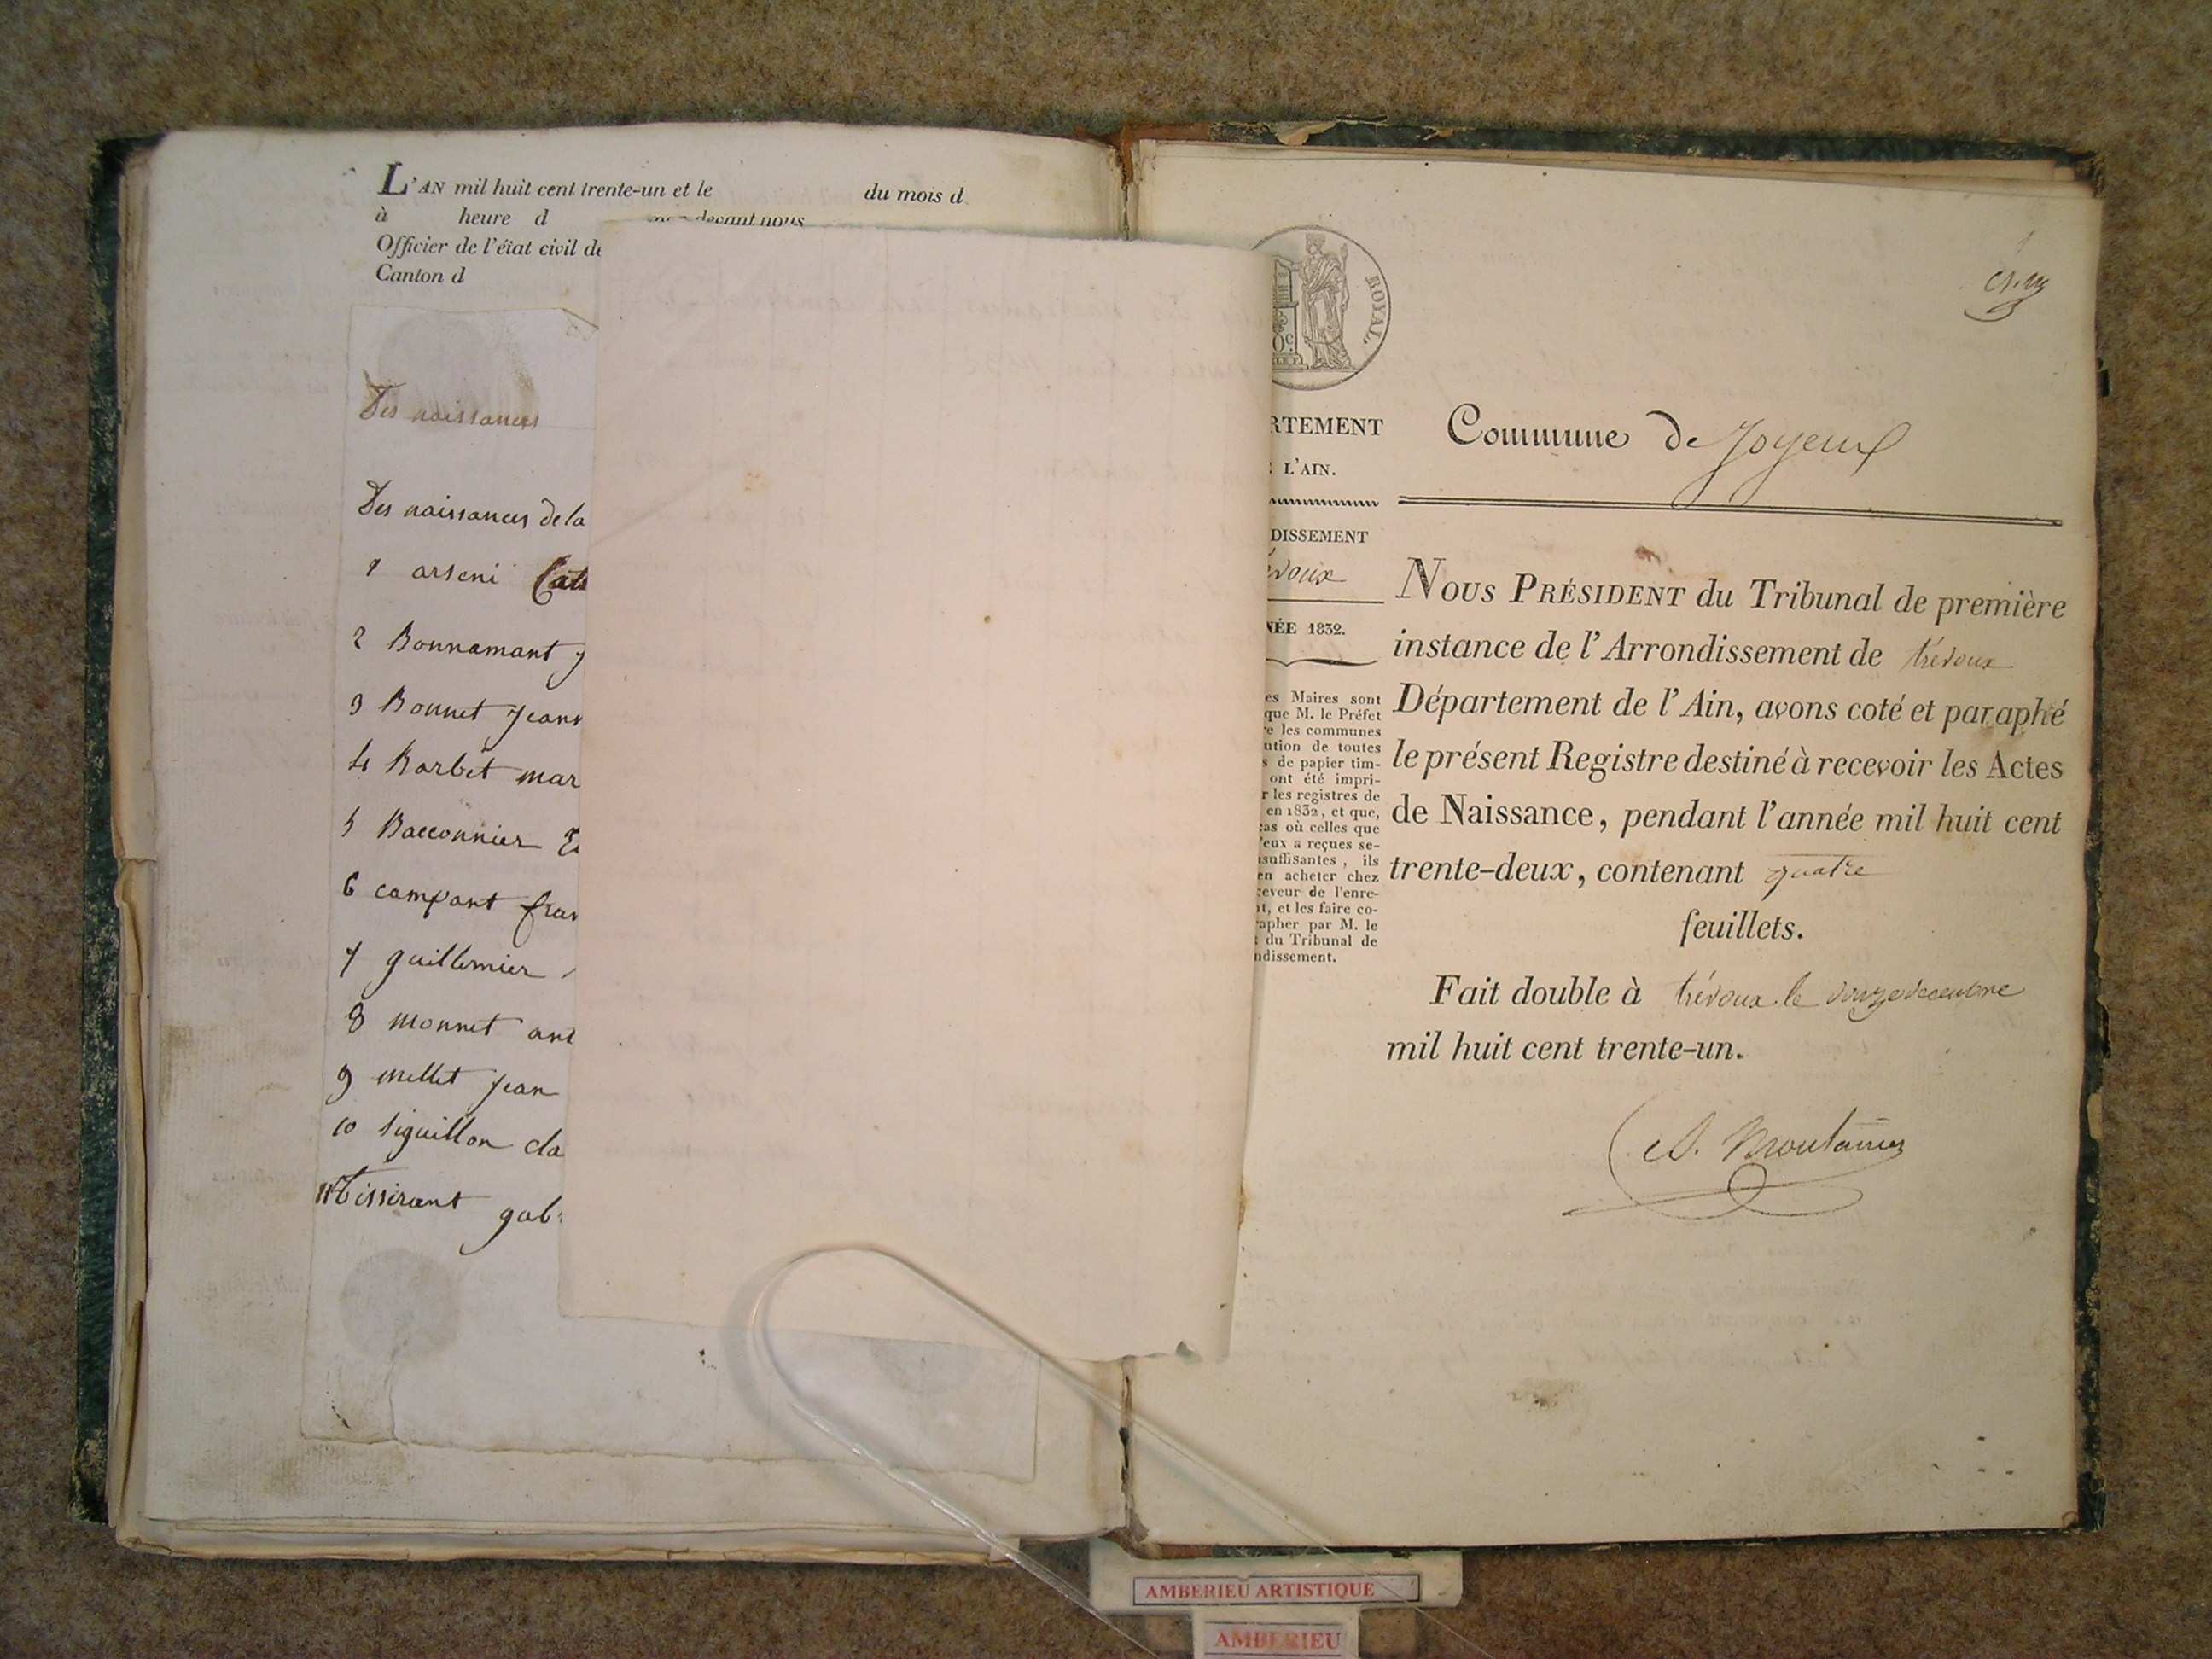 L'AN mil huit cent trente-un et le du mois d
à heure d devant nous
Officier de l'état civil de
Canton d
Des naissances
Des naissances de la
1 arseni Cat
2 Bonnamant j
3 Bonnet jean
4 Barbet mar
5 Bacconnier
6 campant fran
7 guillermier
8 monnet ant
9 mellet jean
10 siguillon cla
11 tissirant gab
ROYAL.
0c
RTEMENT
L'AIN.
DISSEMENT
évoux
NÉE 1832.
es Maires sont
que M. le Préfet
re les communes
ution de toutes
s de papier tim-
ont été impri-
r les registres de
en 1832, et que,
cas où celles que
'eux a reçues se-
nsuffisantes, ils
en acheter chez
ceveur de l'enre-
nt, et les faire co-
rapher par M. le
t du Tribunal de
ndissement.
Commune de Joyeux
Nous PRÉSIDENT du Tribunal de première
instance de l'Arrondissement de trévoux
Département de l'Ain, avons coté et paraphé
le présent Registre destiné à recevoir les Actes
de Naissance, pendant l'année mil huit cent
trente-deux, contenant quatre
feuillets.
Fait double à trévoux le douze décembre
mil huit cent trente-un.
AMBERIEU ARTISTIQUE
AMBERIEU